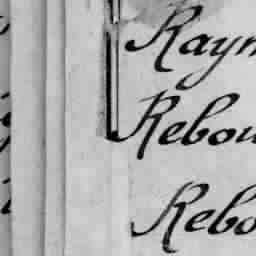 Raym
Rebou
Rebo